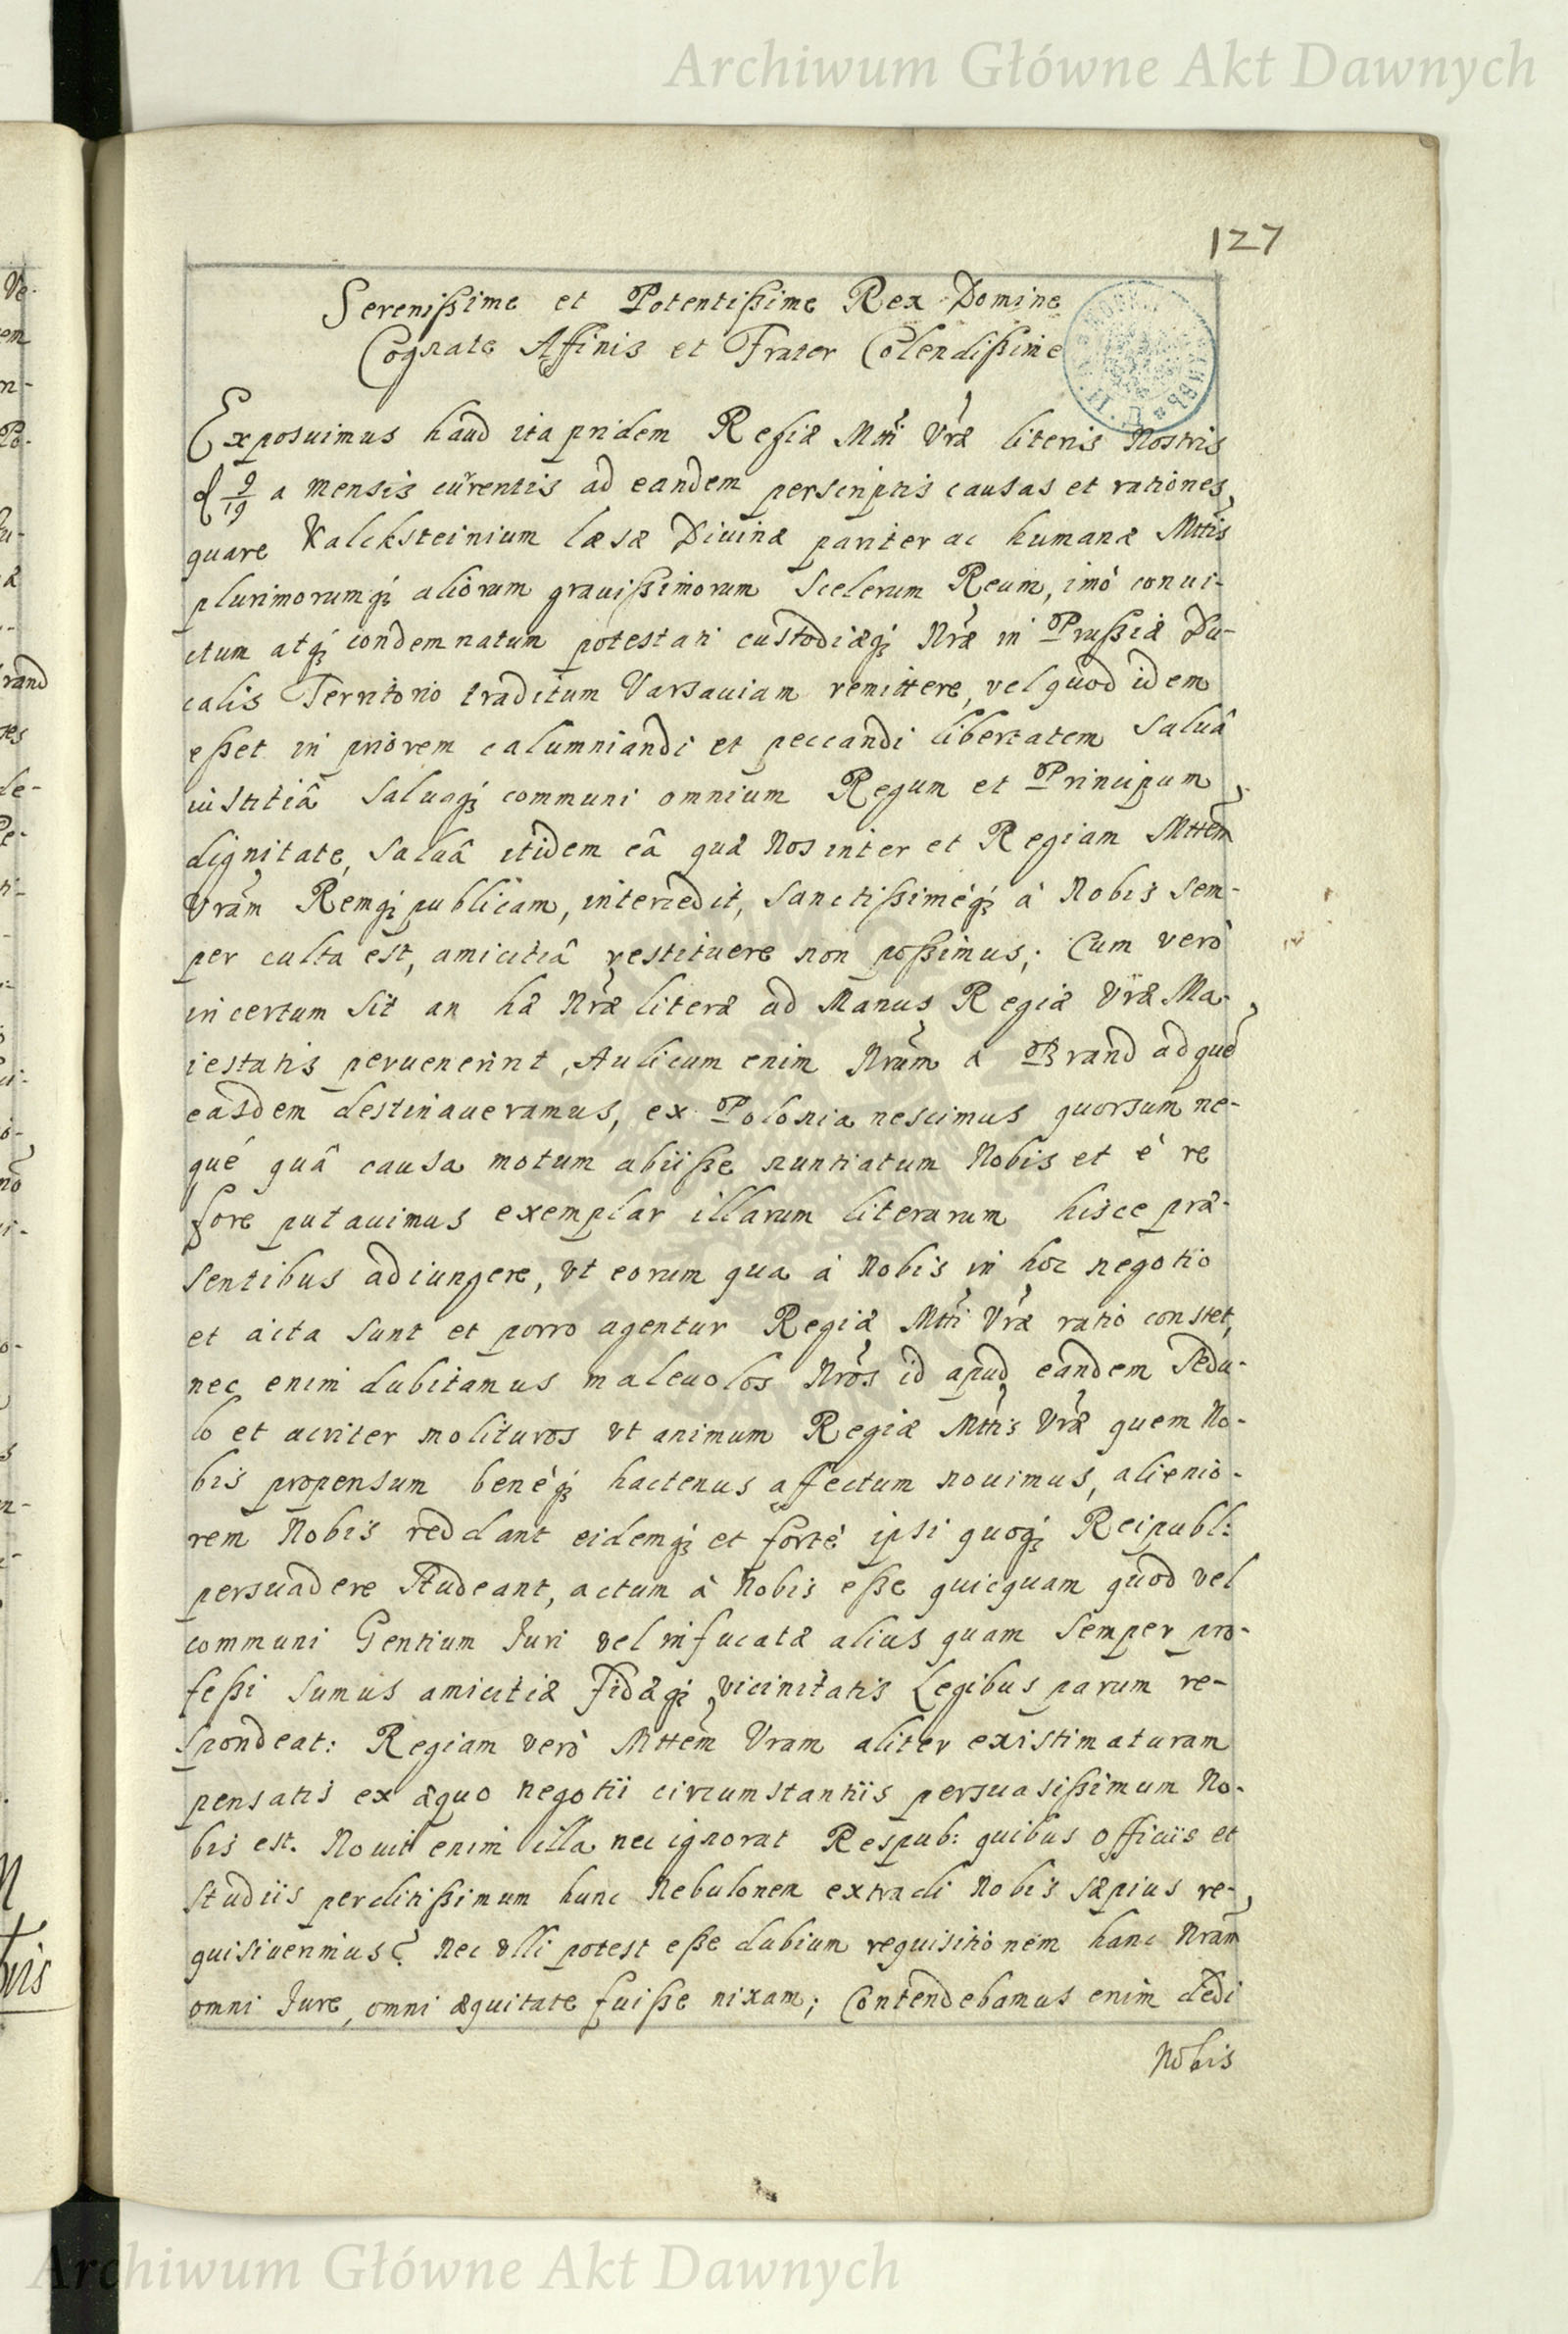 Archiwum Główne Akt Dawnych
127
Serenißime et Potentißime Rex Domine
Cognate Affinis et Frater Colendißime
Exposuimus haud ita pridem Regiæ Mtti Vræ literis Nostris
d 9/19 a mensis currentis ad eandem perscriptis causas et rationes
quare Kalcksteinium læsæ Diuinæ pariter ac humanæ Mttis
plurimorumq; aliorum grauißimorum Scelerum Reum, imò conui-
ctum atq; condemnatum potestati custodiæq; Nræ in Prußiæ Du-
calis Territorio traditum Varsauiam remittere, vel quod idem
eßet in priorem calumniandi et peccandi libertatem Saluâ
iustitiâ Saluaq; communi omnium Regum et Principum
dignitate, Saluâ itidem eâ quæ Nos inter et Regiam Mttem
Vram Remq; publicam, intercedit, Sanctißimeq; à Nobis Sem-
per culta est, amicitiâ restituere non poßimus; Cum verò
incertum Sit an hæ Nræ literæ ad Manus Regiæ Vræ Ma-
iestatis peruenerint, Aulicum enim Nrum a Brand ad quē
easdem destinaueramus, ex Polonia nescimus quorsum ne-
que quâ causa motum abiiße nuntiatum Nobis et è re
fore putauimus exemplar illarum literarum hisce præ-
sentibus adiungere, vt eorum qua à Nobis in hoc negotio
et acta Sunt et porro agentur Regiæ Mtti Vræ ratio constet,
nec enim dubitamus maleuolos Nros id apud eandem Sedu-
lo et acriter molituros vt animum Regiæ Mttis Vræ quem No-
bis propensum benèq; hactenus affectum nouimus, alienio-
rem Nobis reddant eidemq; et fortè ipsi quoq; Reipubl:
persuadere Studeant, actum à Nobis eße quicquam quod vel
communi Gentium Juri vel infucatæ alias quam Semper pro-
feßi Sumus amicitiæ fidæq; vicinitatis Legibus parum re-
spondeat: Regiam verò Mttem Vram aliter existimaturam
pensatis ex æquo negotii circumstantiis persuasißimum No-
bis est. Nouit enim illa nec ignorat Respub: quibus officiis et
Studiis perditißimum hunc Nebulonem extradi Nobis Sæpius re-
quisiuerimus? Nec vlli potest eße dubium requisitionem hanc Nram
omni Jure, omni æquitate fuiße nixam; Contendebamus enim dedi
Nobis
Archiwum Główne Akt Dawnych